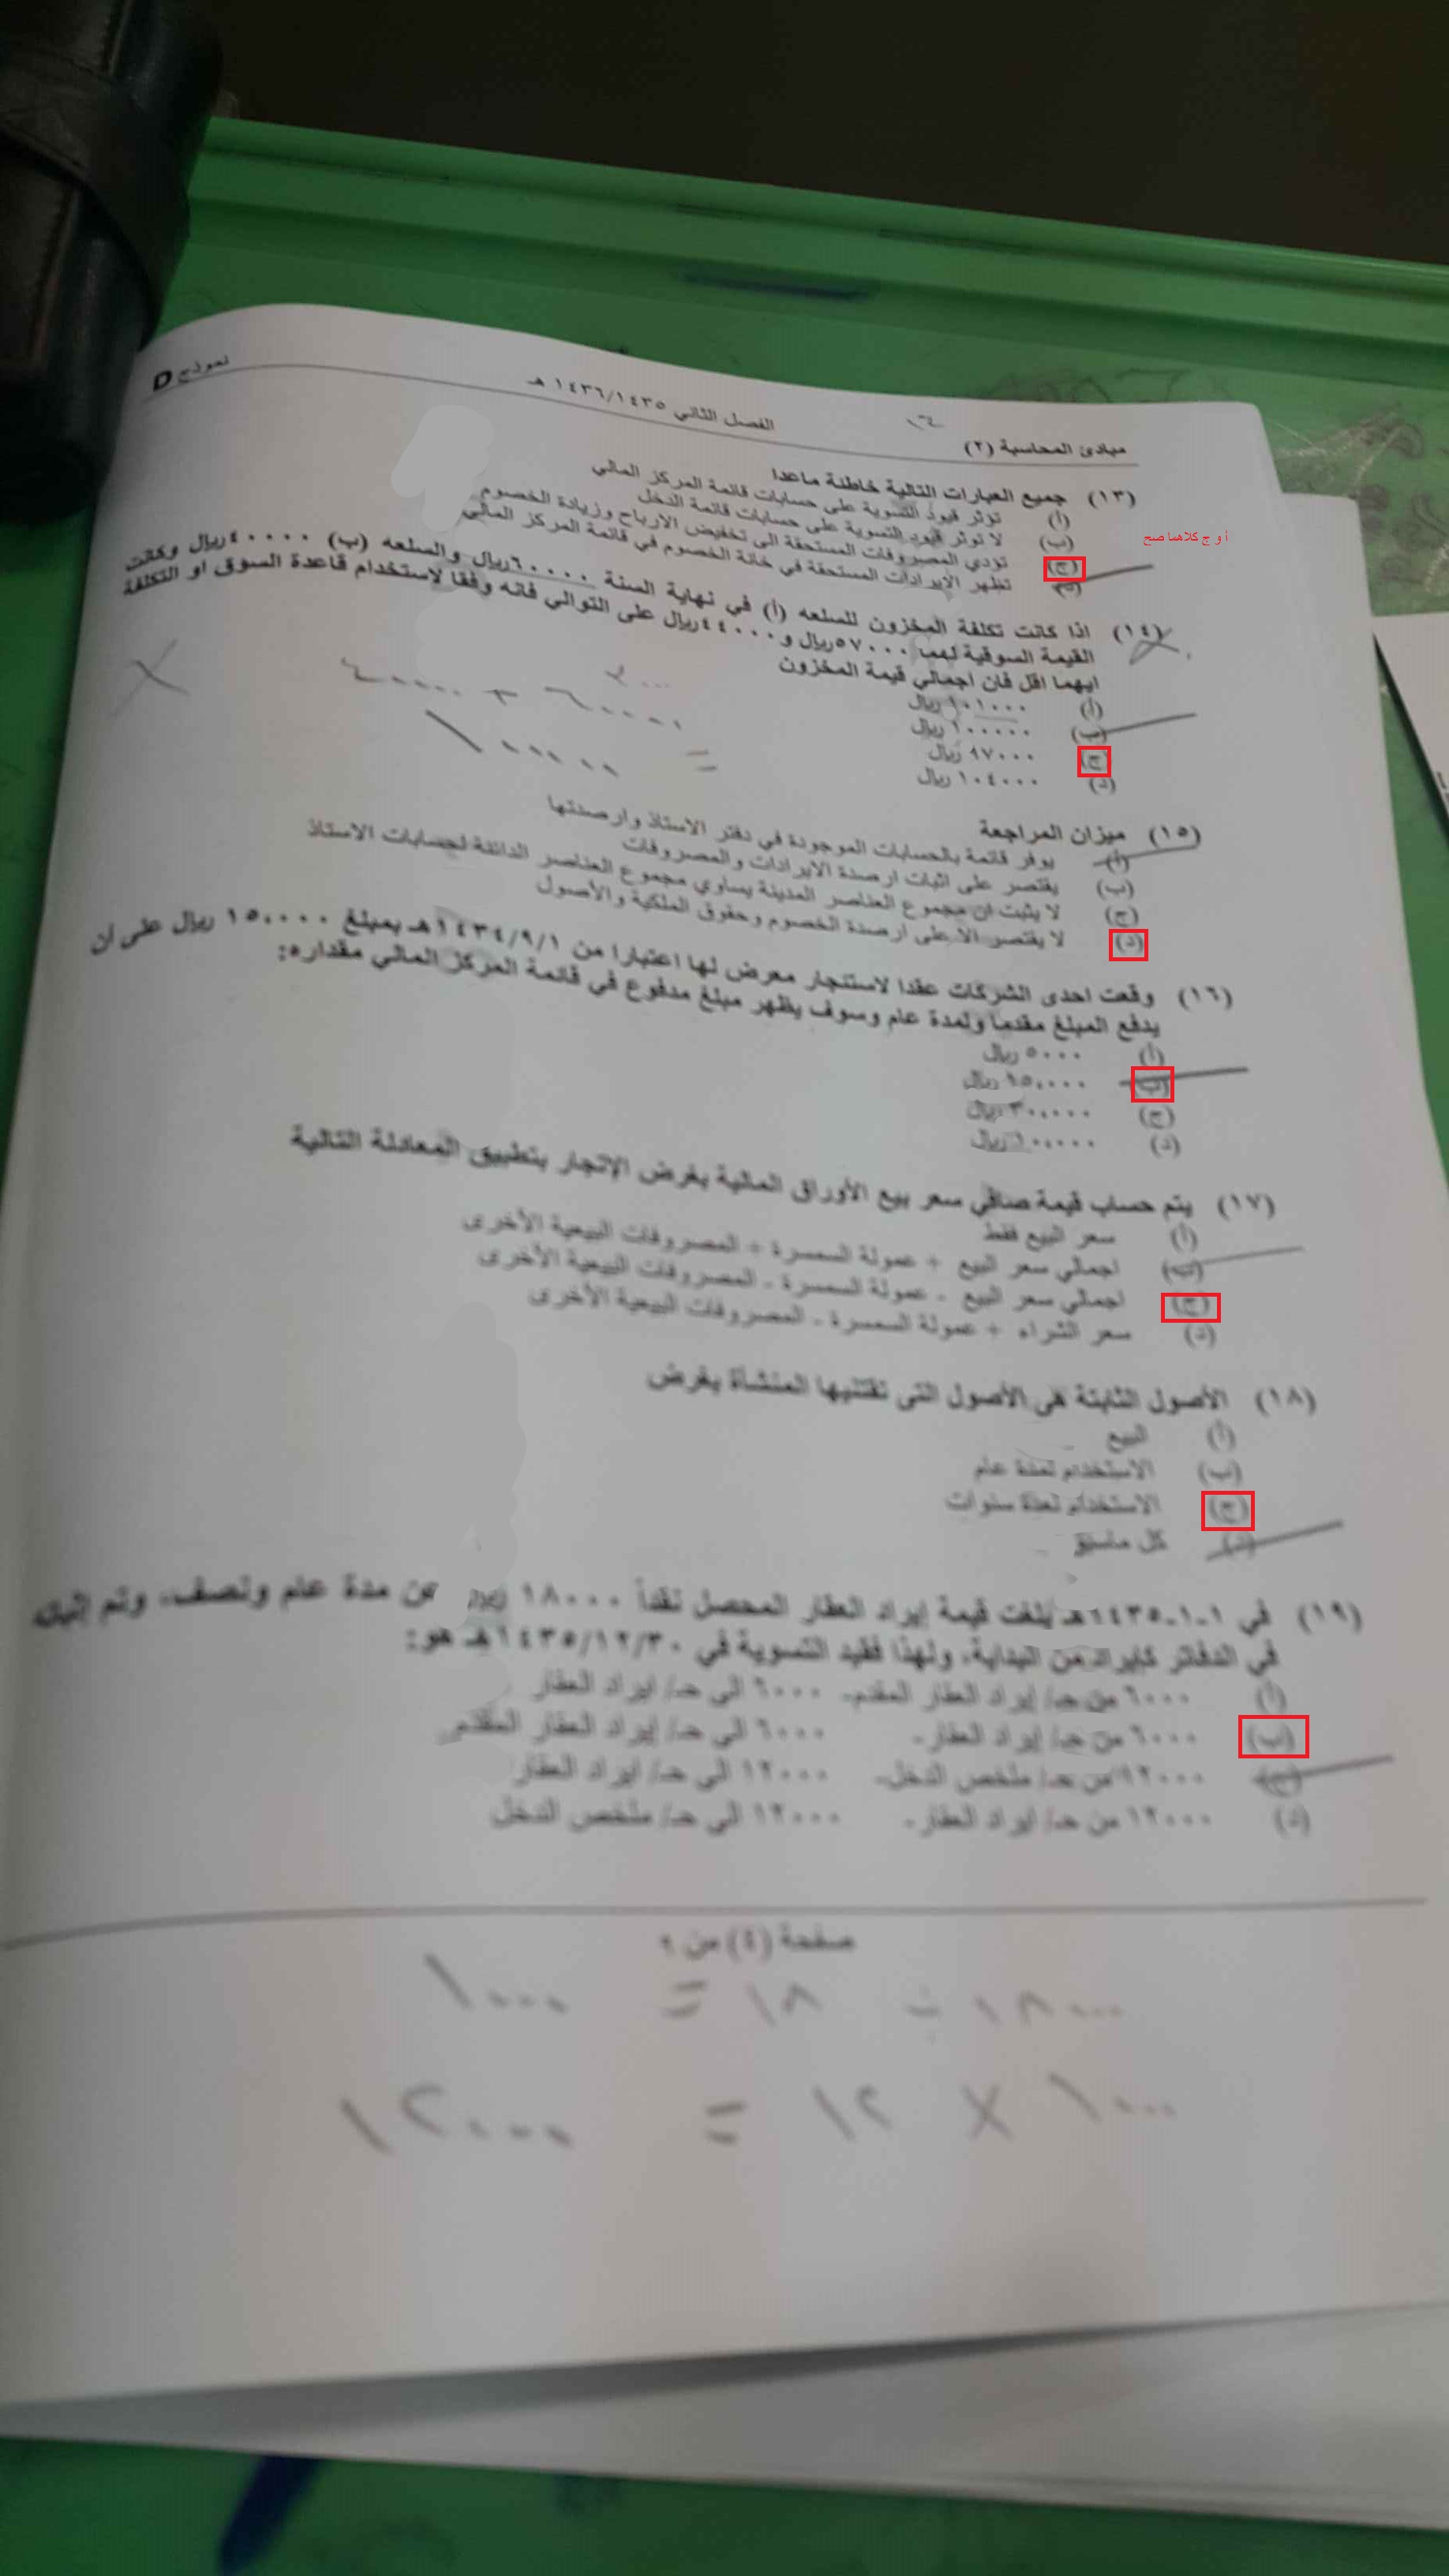 نموذج D
الفصل الثاني ١٤٣٦/١٤٣٥ هـ
مبادئ المحاسبة (٢)
(١٣) جميع العبارات التالية خاطئة ماعدا
(أ) تؤثر قيود التسوية على حسابات قائمة المركز المالي
(ب) لا تؤثر قيود التسوية على حسابات قائمة الدخل
(ج) تؤدي المصروفات المستحقة الى تخفيض الارباح وزيادة الخصوم
(د) تظهر الإيرادات المستحقة في خانة الخصوم في قائمة المركز المالي
أ و ج كلاهما صح
(١٤) اذا كانت تكلفة المخزون للسلعه (أ) في نهاية السنة ٦٠٠٠٠ريال والسلعه (ب) ٤٠٠٠٠ريال وكانت
القيمة السوقية لهما ٥٧٠٠٠ريال و٤٤٠٠٠ريال على التوالي فانه وفقا لاستخدام قاعدة السوق او التكلفة
ايهما اقل فان اجمالي قيمة المخزون
(أ) ١٠١٠٠٠ ريال
(ب) ١٠٠٠٠٠ ريال
(ج) ٩٧٠٠٠ ريال
(د) ١٠٤٠٠٠ ريال
٤٠٠٠٠ + ٦٠٠٠٠
= ١٠٠٠٠٠
(١٥) ميزان المراجعة
(أ) يوفر قائمة بالحسابات الموجودة في دفتر الاستاذ وارصدتها
(ب) يقتصر على اثبات ارصدة الايرادات والمصروفات
(ج) لا يثبت ان مجموع العناصر المدينة يساوي مجموع العناصر الدائنة لحسابات الاستاذ
(د) لا يقتصر الا على ارصدة الخصوم وحقوق الملكية والأصول
(١٦) وقعت احدى الشركات عقدا لاستئجار معرض لها اعتبارا من ١٤٣٤/٩/١هـ بمبلغ ١٥٠٠٠٠ ريال على ان
يدفع المبلغ مقدما ولمدة عام وسوف يظهر مبلغ مدفوع في قائمة المركز المالي مقداره:
(أ) ٥٠٠٠ ريال
(ب) ريال
(ج) ٣٠٠٠٠ ريال
(د) ريال
(١٧) يتم حساب قيمة صافي سعر بيع الأوراق المالية بغرض الإتجار بتطبيق المعادلة التالية
(أ) سعر البيع فقط
(ب) اجمالي سعر البيع + عمولة السمسرة + المصروفات البيعية الأخرى
(ج) اجمالي سعر البيع - عمولة السمسرة - المصروفات البيعية الأخرى
(د) سعر الشراء + عمولة السمسرة - المصروفات البيعية الأخرى
(١٨) الأصول الثابتة هى الأصول التى تقتنيها المنشأة بغرض
(أ) البيع
(ب) الاستخدام لمدة عام
(ج) الاستخدام لعدة سنوات
(د) كل ماسبق
(١٩) في ١-١-١٤٣٥هـ بلغت قيمة إيراد العقار المحصل نقداً ١٨٠٠٠ ريال عن مدة عام ونصف، وتم إثباته
في الدفاتر كإيراد من البداية، ولهذا فقيد التسوية في ١٤٣٥/١٢/٣٠هـ هو:
(أ) ٦٠٠٠ من حـ/ إيراد العقار المقدم- ٦٠٠٠ الى حـ/ ايراد العقار
(ب) ٦٠٠٠ من حـ/ إيراد العقار- ٦٠٠٠ الى حـ/ إيراد العقار المقدم
(ج) ١٢٠٠٠ من حـ/ ملخص الدخل- ١٢٠٠٠ الى حـ/ ايراد العقار
(د) ١٢٠٠٠ من حـ/ ايراد العقار- ١٢٠٠٠ الى حـ/ ملخص الدخل
صفحة (٤) من ٩
١٨٠٠٠ ÷ ١٨ = ١٠٠٠
١٠٠٠ × ١٢ = ١٢٠٠٠